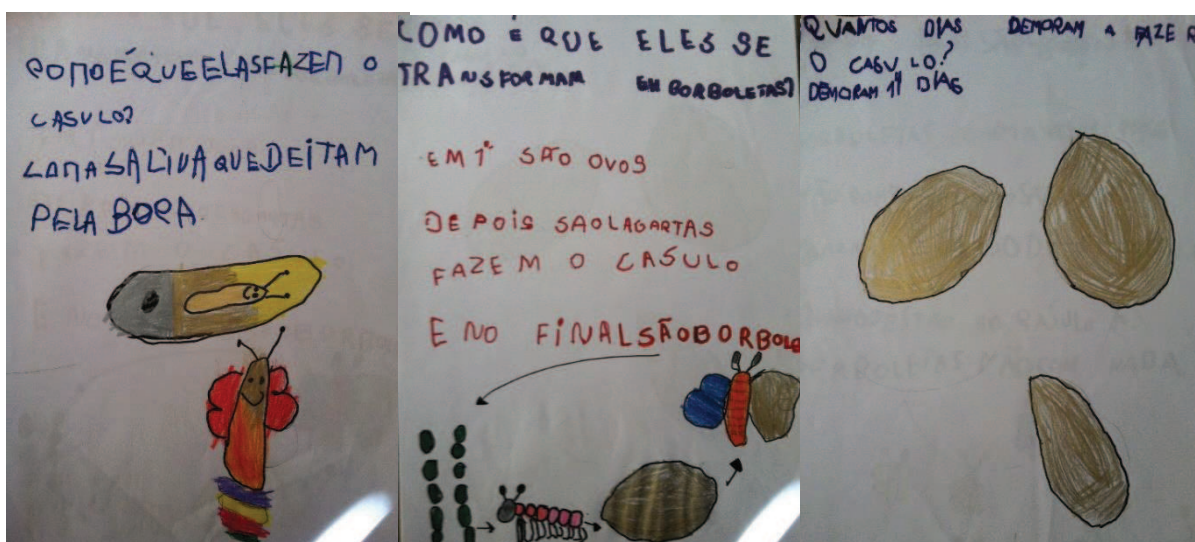 COMO É QUE ELAS FAZEM O
CASULO?
COM A SALIVA QUE DEITAM
PELA BOCA.
COMO É QUE ELES SE
TRANSFORMAM EM BORBOLETAS?
EM 1º SÃO OVOS
DEPOIS SAO LAGARTAS
FAZEM O CASULO
E NO FINAL SÃO BORBOLE
QUANTOS DIAS DEMORAM A FAZER
O CASULO?
DEMORAM 11 DIAS